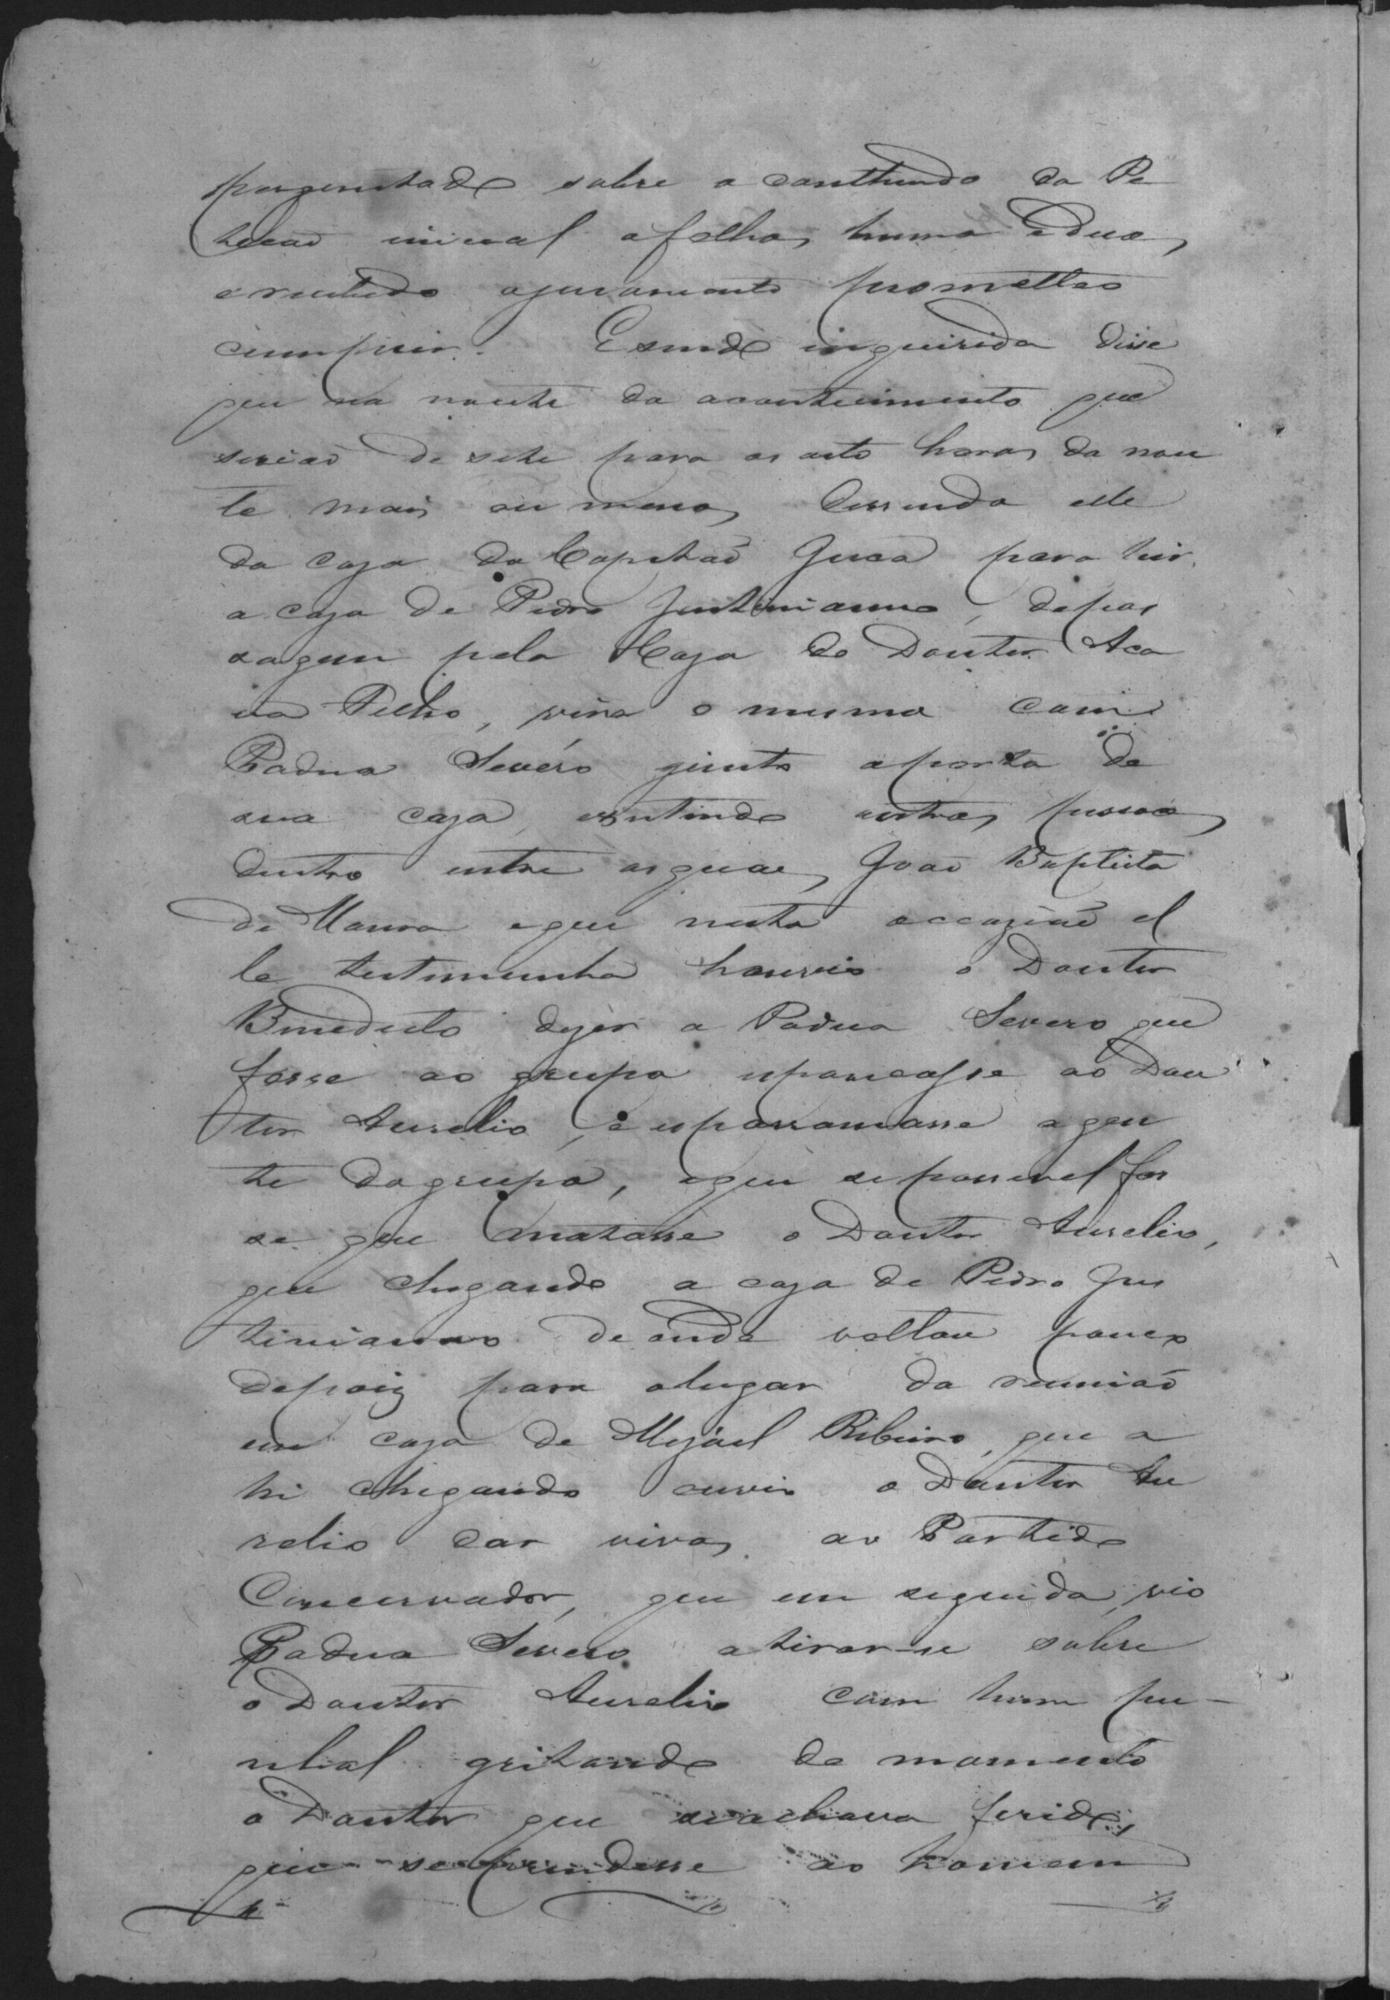 perguntado sobre o conthendo da Pe
ticao inicial afolhas huma e duas,
erecebido ojuramento prometteo
cumprir. Esendo inquirida disse
que na noute do acontecimento que
seriao de sete para as outo horas da nou
te mais ou menos, elle
da caza do Capitaõ Juca para hir
a caza de Pedro Justinianno, depas
sagem pela Caza do Doutor
Filho, vira o mesmo com
Padua Sevéro junto aporta de
sua caza, existindo outras pessoas
dentro entre asquaes, Joao Baptista
de Moura eque nesta occaziaõ el
le testimunha houvio o Doutor
Benedicto dizer a Padua Severo que
fosse ao grupo espancasse ao Dou
tor Aurelio, e esparramasse agen
te dogrupo, eque sepossivel fos
se que matasse o Doutor Aurelio,
que chegando a caza de Pedro Jus
tinianno de onde voltou pouco
depoiz para olugar da reuniaõ
em caza de Mizael Ribeiro, que a
hi chegando ouvio o Doutor Au
relio dar vivas ao Partido
Concervador, que em seguida vio
Padua Severo atirar-se sobre
o Doutor Aurelio com hum pu-
nhal gritando de momento
o Doutor que seachava ferido,
que seprendesse ao homem